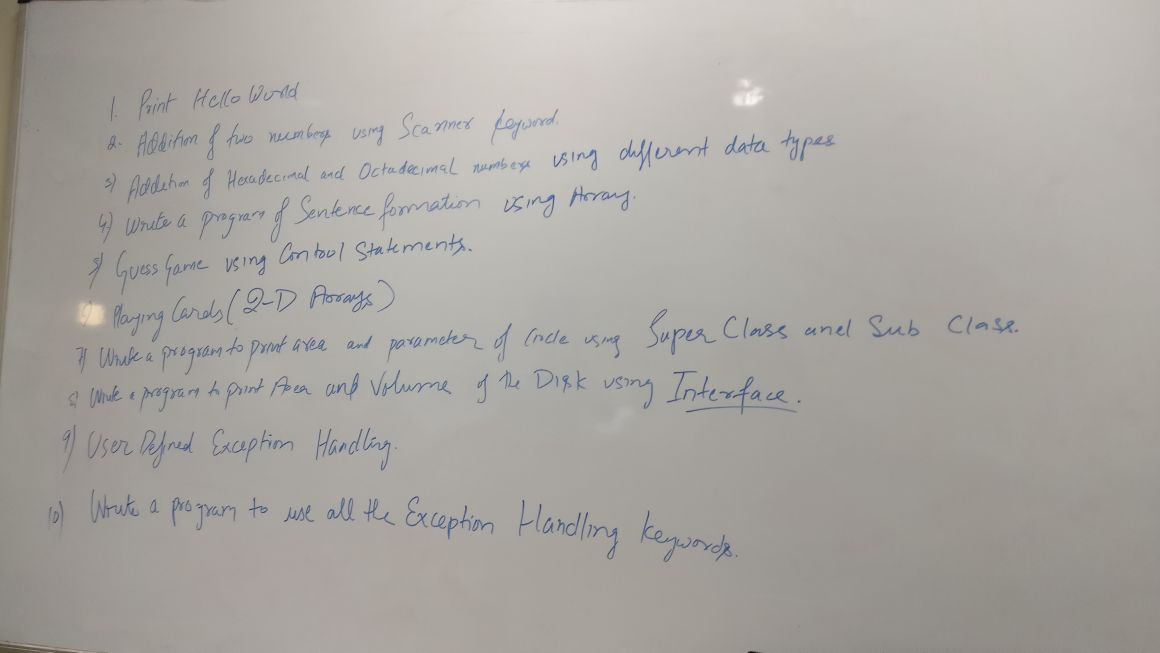 1. Print Hello World
2. Addition of two numbers using Scanner keyword.
3) Addition of Hexadecimal and Octadecimal numbers using different data types
4) Write a program of Sentence formation using Array.
5) Guess Game using Control Statements.
6) Playing Cards (2-D Arrays)
7) Write a program to print area and parameter of Circle using Super Class and Sub Class.
8) Write a program to print Area and Volume of the Disk using Interface.
9) User Defined Exception Handling.
10) Write a program to use all the Exception Handling keywords.